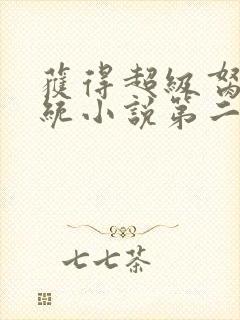 獲得超級
統小說第二
七七茶